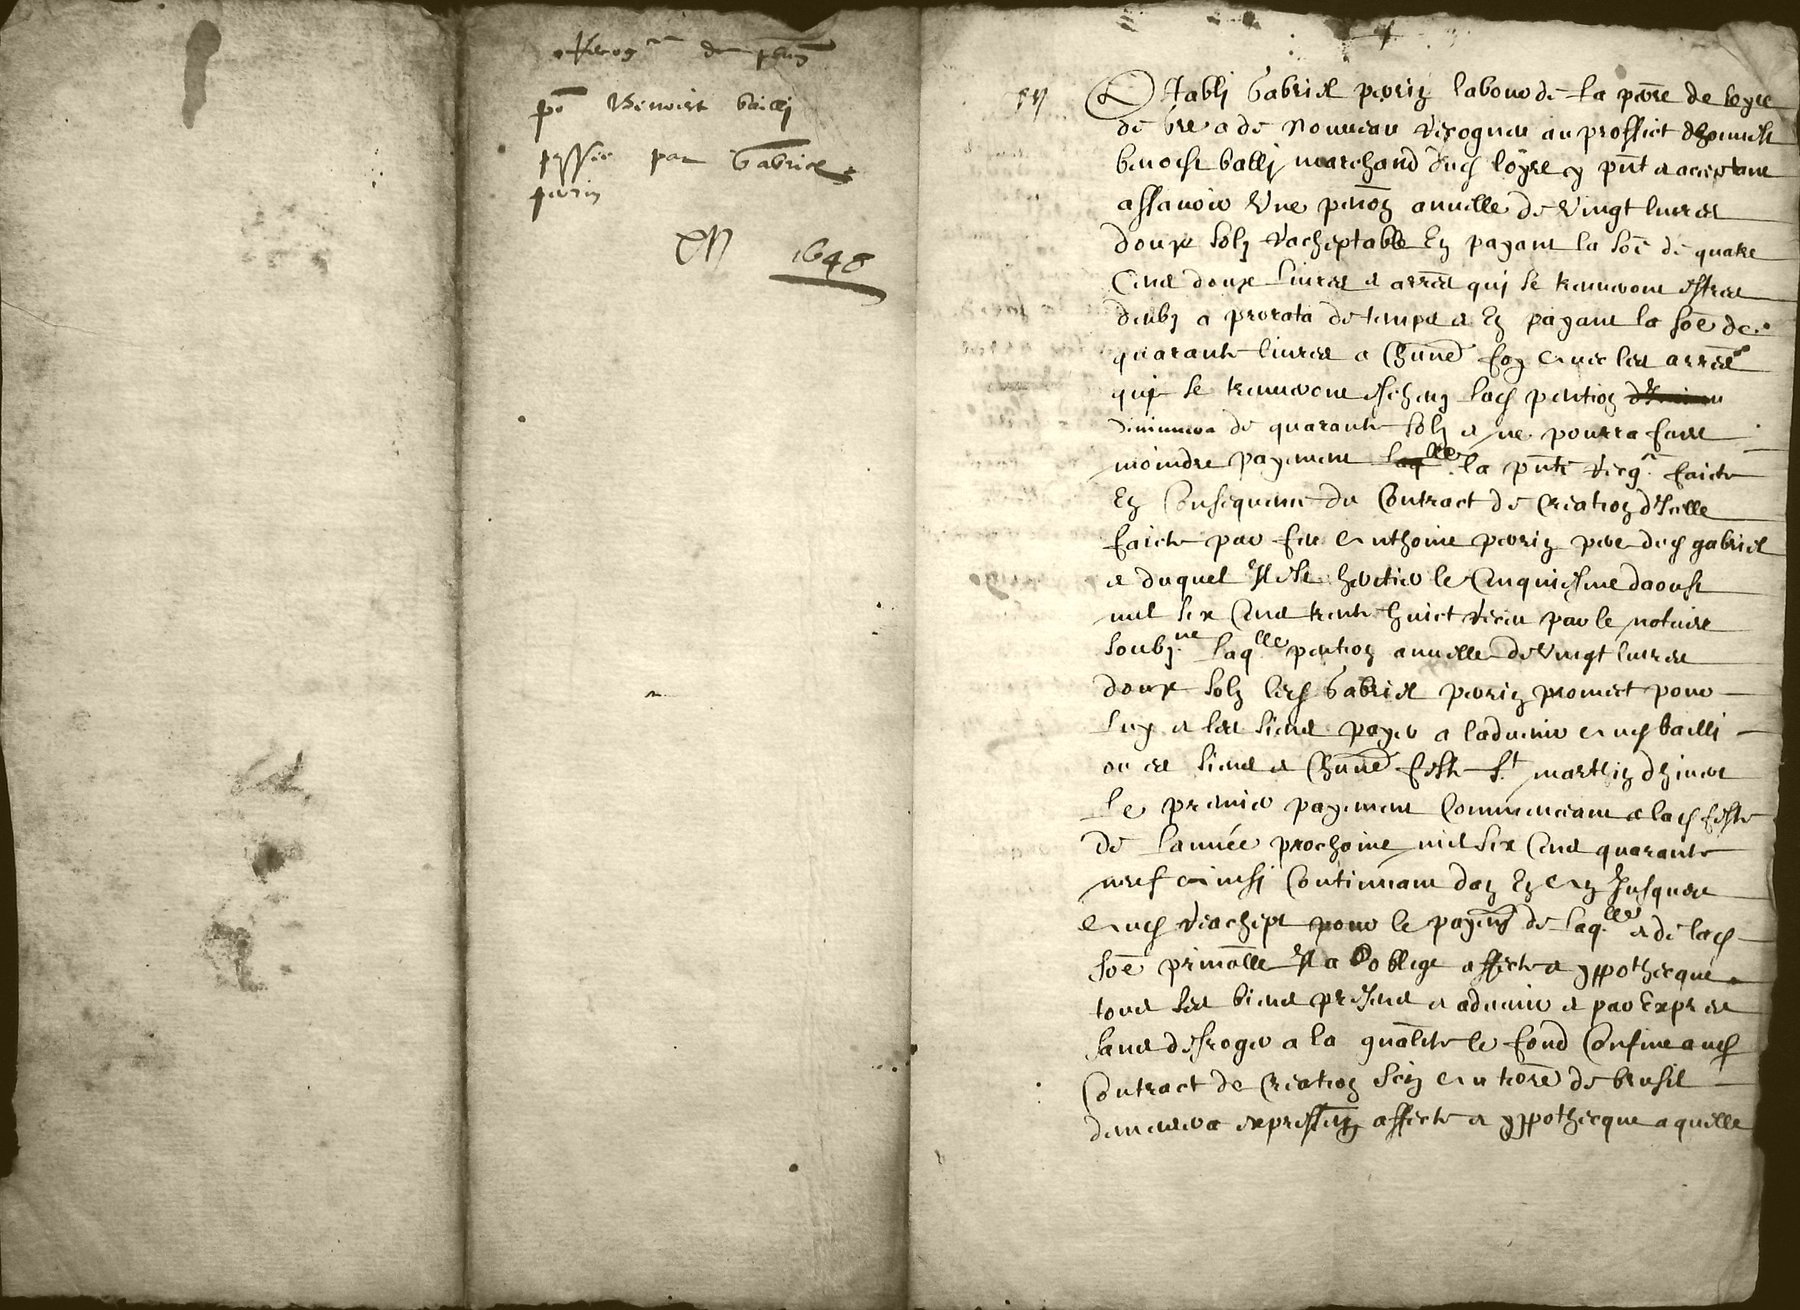 Recog^n de pen^on
po^r Benoist bailli
passée par Gabriel
perin
1648
Establi Gabriel perrin labour de la parre de loyre
de gre a de nouveau recogneu au proffict dhonneste
benoist balli marchand dud loyre y pnt et acceptant
assavoir Une pention annuelle de vingt livres
douze solz racheptable En payant la soe de quatre
Cens douze livres et arres qui se treuveront estres
deubz a prorata de temps et En payant la soe de
quarante livres a chune foy avec les arres
qui se treuveront escheuz lad pention
diminuera de quarante solz et ne pourra faire
moindre payement la pnte recog^n faicte
En Consequence du Contract de Creation d'Icelle
faicte par feu Anthoine perrin pere dud gabriel
et duquel Il est heritier le Cinquiesme daoust
mil six Cens trente huict receu par le notaire
soubz^ne laq^lle pention annuelle de vingt livres
douze solz led Gabriel perrin promect pour
luy et les siens payer a ladvenir aud bailli
ou es siens a chune feste S^t marthin dhiver
le premier payement Commenceant a lad feste
de l'année prochaine mil six Cens quarante
neuf ainsi Continuant dan En An Jusques
aud reachept pour le payemt de laq^lle et de lad
soe prinalle Il a oblige affecte et yppothecque
tous ses biens presens et advenir et par Expres
sans desroger a la qualite le fond Confine aud
Contract de Creation de brusil
demeurera expressemt affecte et yppothecque aquelle